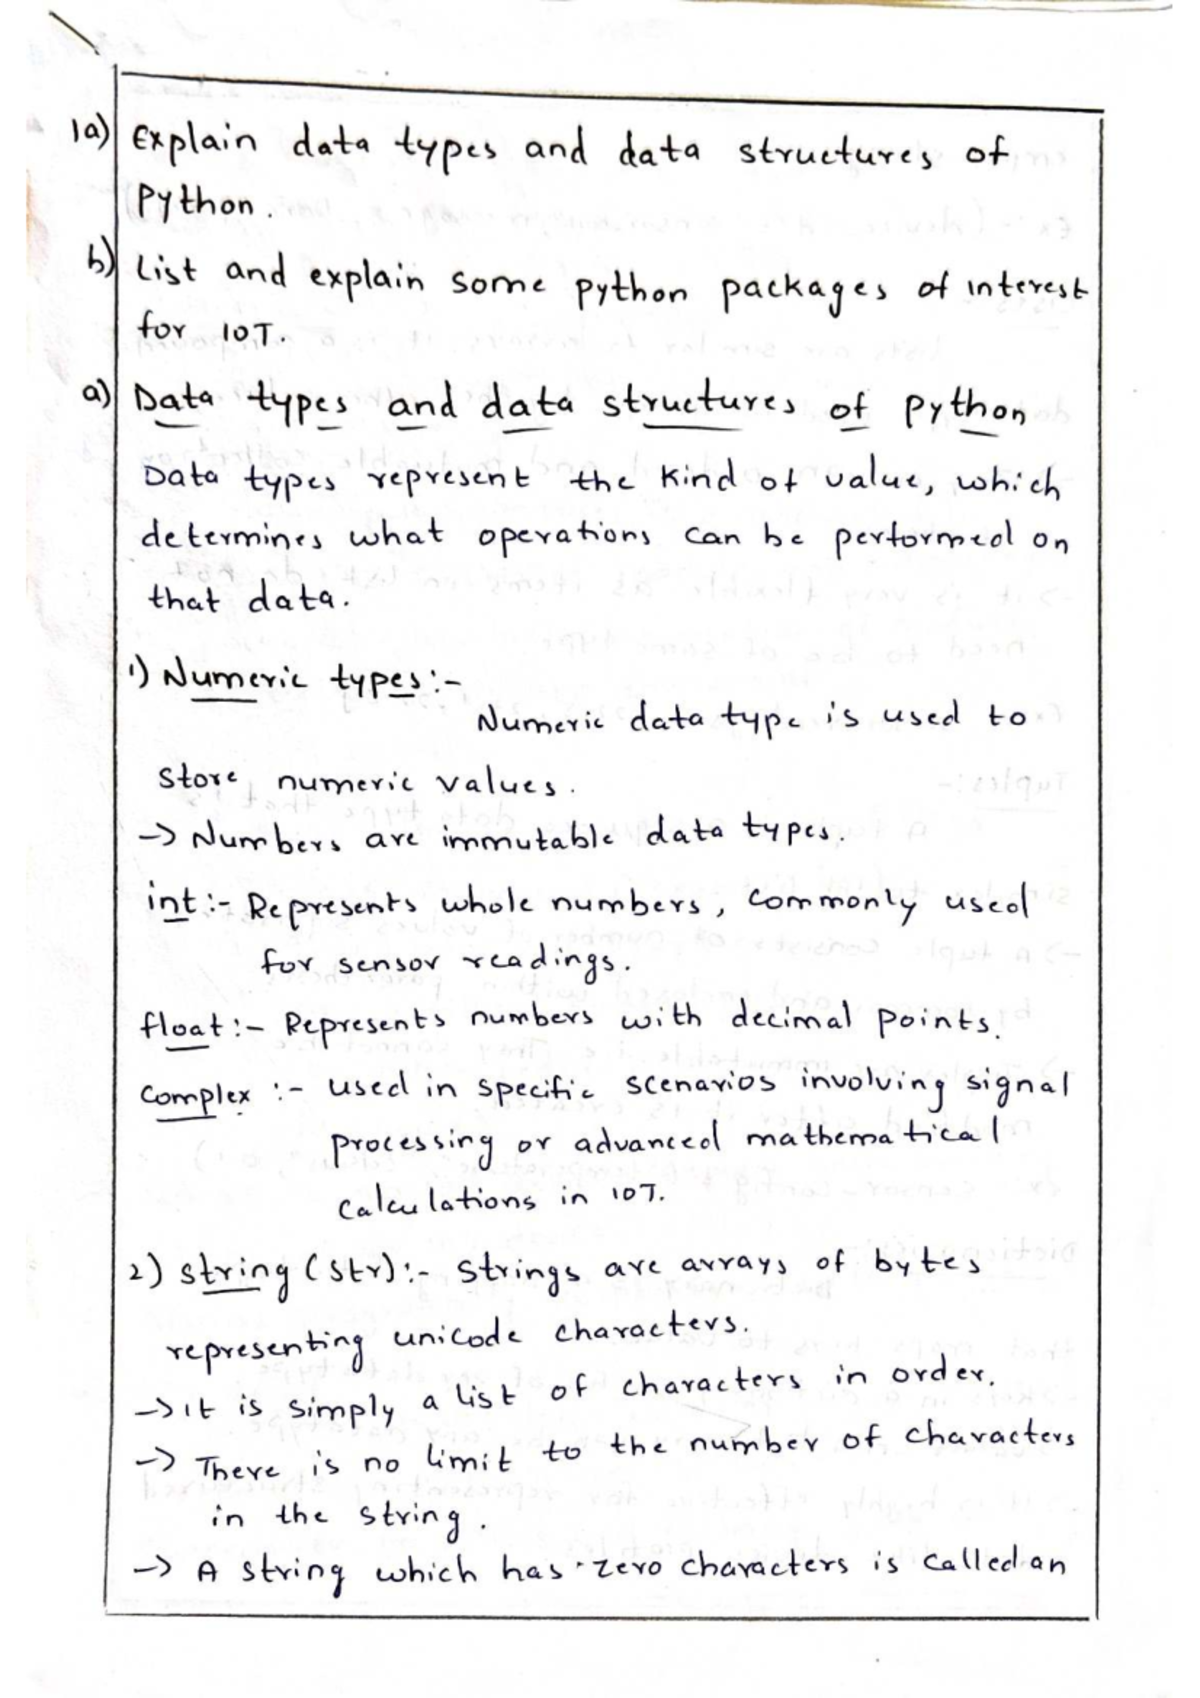 1a) Explain data types and data structures of
Python.
b) List and explain some python packages of interest
for IOT.
a) Data types and data structures of python
Data types represent the kind of value, which
determines what operations can be performed on
that data.
1) Numeric types:-
Numeric data type is used to
store numeric values.
-> Numbers are immutable data types.
int:- Represents whole numbers, commonly used
for sensor readings.
float:- Represents numbers with decimal points.
Complex :- used in specific scenarios involving signal
processing or advanced mathematical
calculations in IOT.
2) string (str):- strings are arrays of bytes
representing unicode characters.
-> it is simply a list of characters in order.
-> There is no limit to the number of characters
in the string.
-> A string which has zero characters is called an